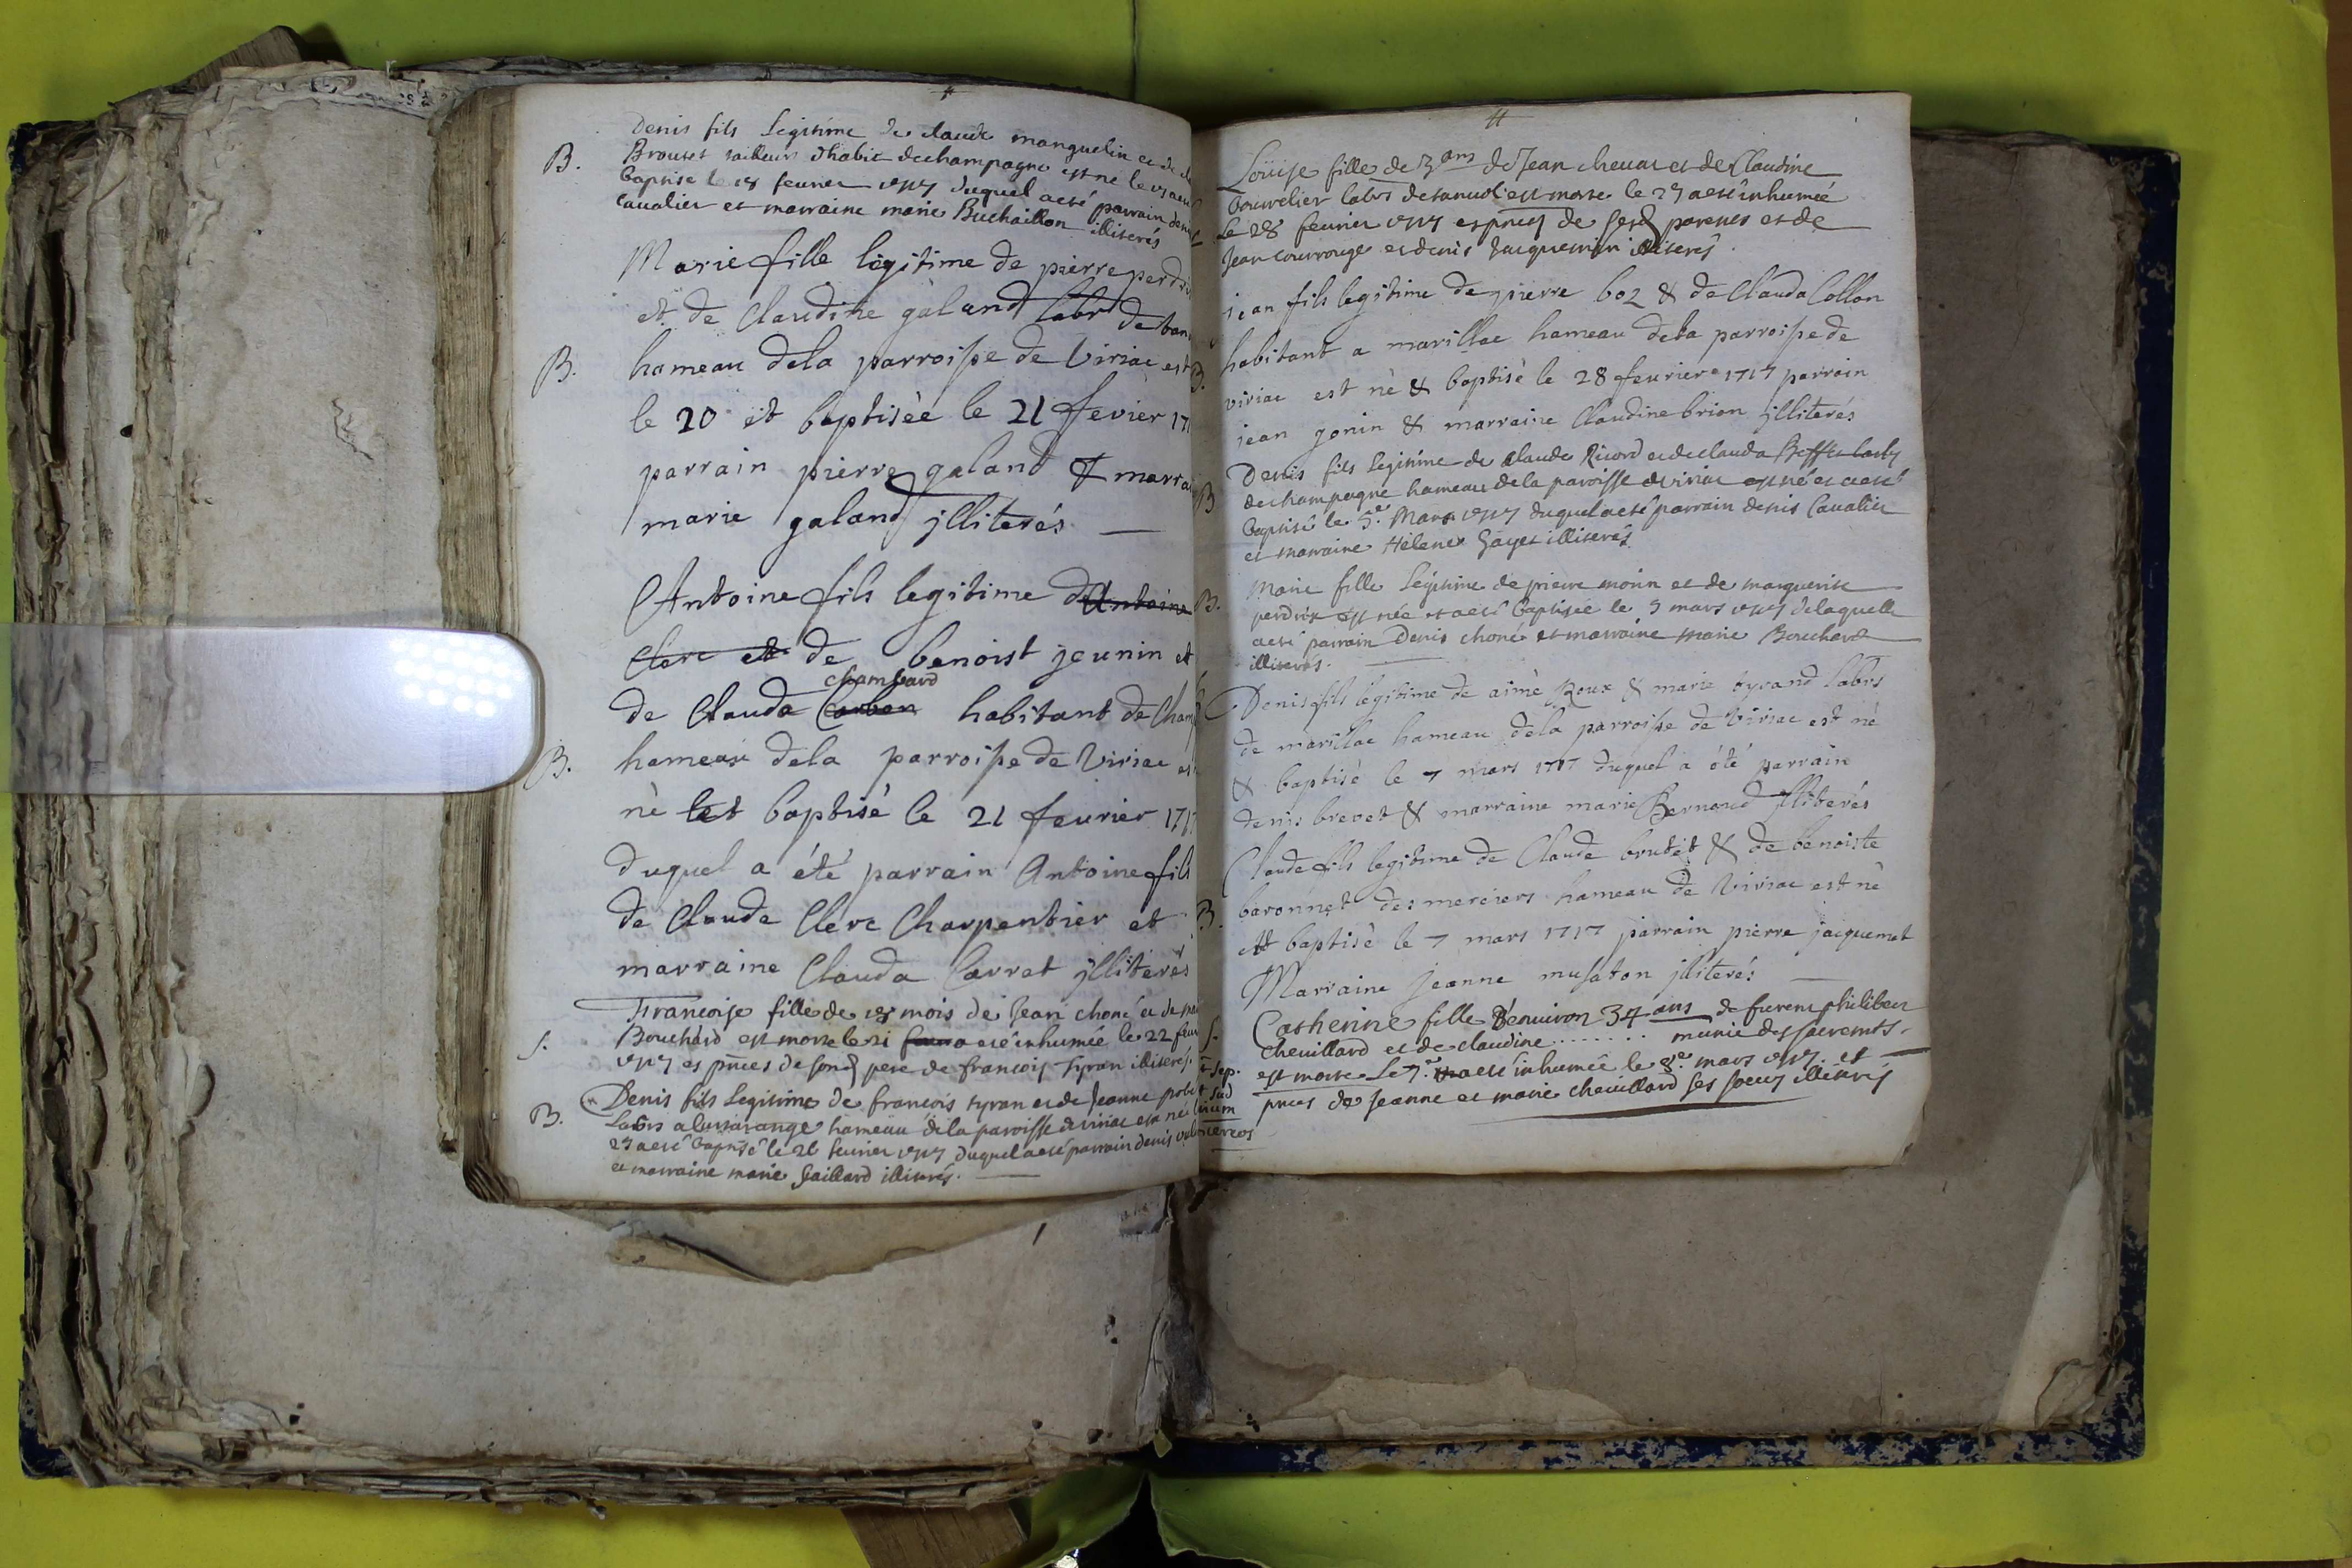 Denis fils Legitime de claude manguelin et de
Brouset tailleur d'habit de champagne est né le
baptisé le 18 feurier 1717 duquel a eté parrain denis
Caualier et marraine marie Buchaillon illiterés
B.
Marie fille légitime de pierre perdri
et de Claudine galand labr de
B. hameau dela parroisse de Viriac est
le 20 et baptisèe le 21 fevièr 17
parrain pierre galand & marra
marie galand jlliterés
Antoine fils legitime de Antoine
Clerc et de benoist jeunin et
chambard
de Clauda habitant de Cham
B. hameau dela parroisse de Viriac es
nè et baptisé le 21 feurier 171
duquel a été parrain Antoine fils
de Claude Clerc Charpentier et
marraine Clauda Carret jlliterés
Francoise fille de 18 mois de Jean choné et de ma
S. Bouchard est morte le 21 a eté inhumée le 22 feur
1717 es pnces de sond pere de francois Tyran illiteres.
B. Denis fils Legitime de francois tyran et de Jeanne probet
Labrs a hameau de la paroisse de viriac est né le
23 a eté baptisé le 26 feurier 1717 duquel a eté parrain denis
et marraine marie Gaillard illiterés.
Loüise fille de 3 ans de Jean cheuat et de Claudine
bourcelier labrs de tanuol est morte le 27 a eté inhumeé
le 28 feurier 1717 es pnces de sesd parents et de
Jean courrouge et denis Jacquemin illiterés
jean fils legitime de pierre boz & de Clauda Collon
B. habitant a marillac hameau dela parroisse de
viriac est nè & baptisè le 28 feurier 1717 parrain
jean gonin & marraine Claudine brion jlliterés
Denis fils Legitime de claude Ricord et de clauda
B de champagne hameau de la paroisse de viriac est né et a eté
baptisé le 5e Mars 1717 duquel a eté parrain denis Caualier
et marraine Hélene Gayet illiterés
Marie fille Legitime de pierre morin et de marguerite
B. perdrix est née et a eté baptisée le 5 mars 1717 de laquelle
a eté parrain Denis choné et marraine marie Bouchard
illiterés.
Denis fils legitime de aimè Roux & marie tyrand labrs
de marillac hameau dela parroisse de Viriac est né
& baptisè le 7 mars 1717 duquel a été parrain
denis brevet & marraine marie Bernard Jlliterés
Claude fils legitime de Claude brutet & de benoiste
B. baronnet des merciers hameau de Viriac est nè
et baptisè le 7 mars 1717 parrain pierre jacquemet
Marraine jeanne musaton jlliterés
Catherine fille d'enuiron 34 ans de furent philibert
S. cheuillard et de claudine ........ munie des sacremts.
est morte Le 7e a eté inhumée le 8e mars 1717. es
pnces de Jeanne et marie cheuillard ses soeurs illiterés